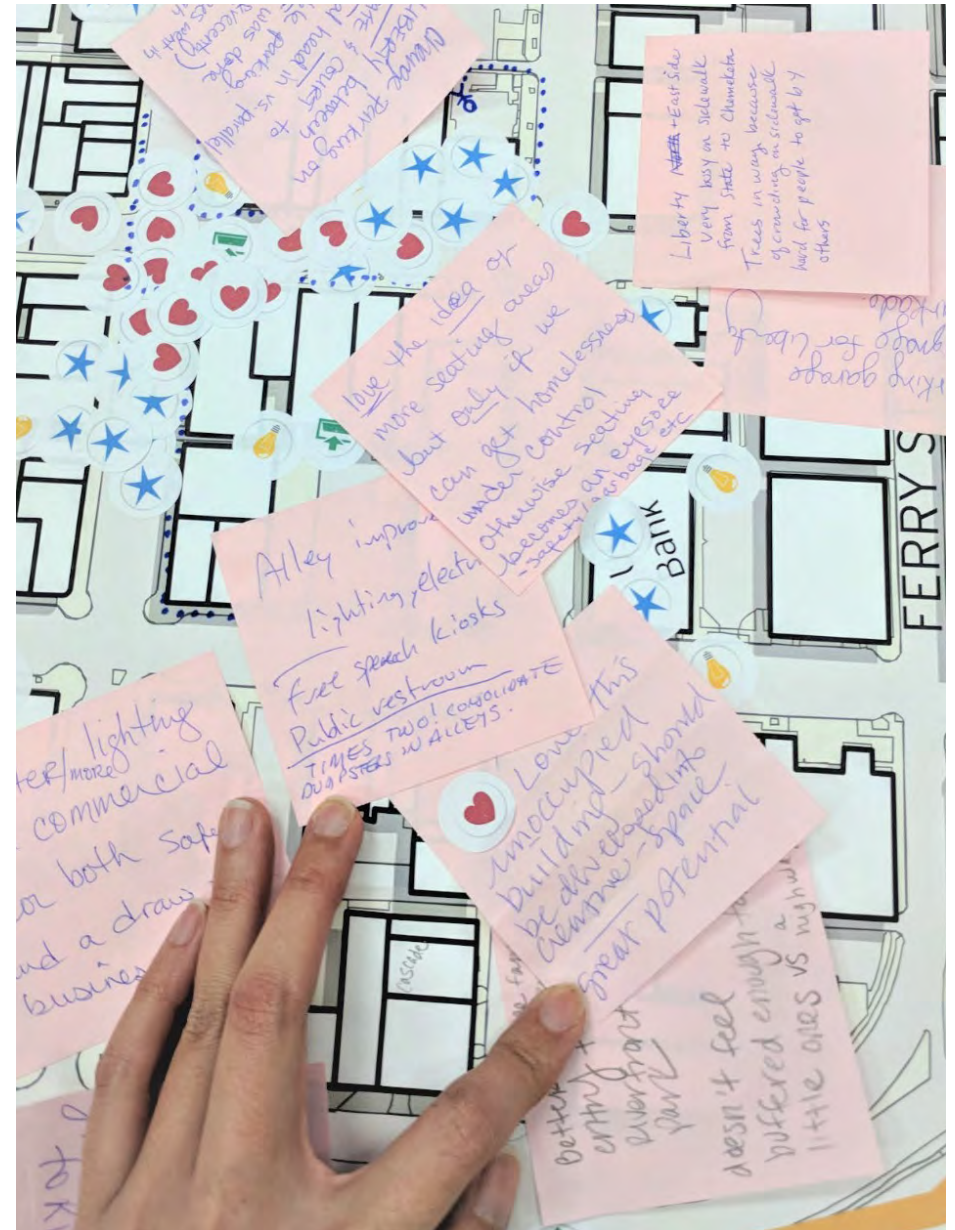 Change Parking on
between
head in vs parallel
was done
recently)
Liberty + East Side
very busy on sidewalk
from State to Chemeketa
Trees in way because
of crowding on sidewalk
hard for people to get by
others
for Libert
rking garage
love the idea of
more seating areas
but only if we
can get homelessness
under control
otherwise seating
becomes an eyesore
-safety/garbage etc
Bank
FERRY S
Alley improve
lighting, electri
Free speech kiosks
Public restroom
TIMES TWO! CONSOLIDATE
DUMPSTERS IN ALLEYS.
ter/more lighting
commercial
or both safe
and a draw
busines
Love this
unoccupied
building - should
be developed into
creative - space
great potential
cascade
Better
entry
riverfront
park
doesn't feel
buffered enough
little ones vs highw